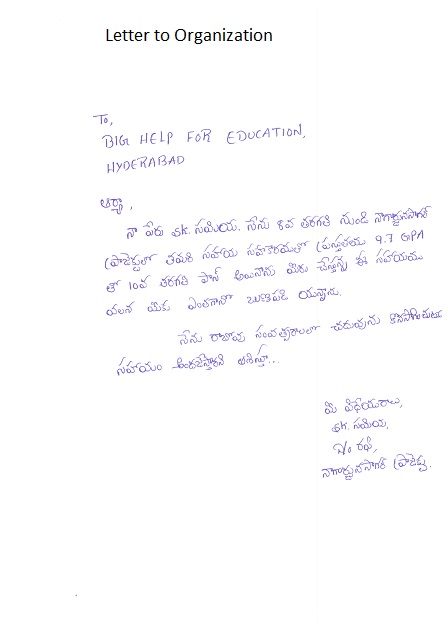 Letter to Organization
To,
BIG HELP FOR EDUCATION,
HYDERABAD
ఆర్యా,
నా పేరు sk. సమియ. నేను 8వ తరగతి నుండి నాగార్జునసాగర్
ప్రాజెక్టులో తమరి సహాయ సహకారముతో ప్రస్తుతము 9.7 GPA
తో 10వ తరగతి పాస్ అయినాను మీరు చేస్తున్న ఈ సహాయము
వలన మీకు ఎంతగానో ఋణపడి యున్నాను.
నేను రాబోవు సంవత్సరాలలో చదువును కొనసాగించుటకు
సహాయం అందజేస్తారని ఆశిస్తూ...
మీ విధేయురాలు,
sk. సమియ,
D/o రఫి,
నాగార్జునసాగర్ ప్రాజెక్టు.